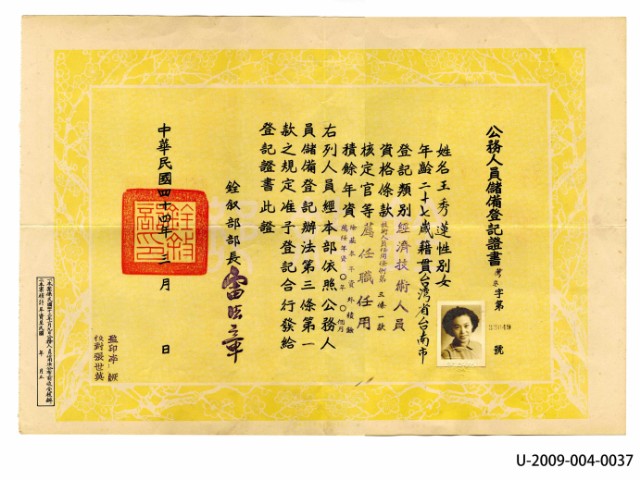 公務人員儲備登記證書
考 字第 號
姓名王秀蓮性別女
年齡二十七歲籍貫台灣省台南市
登記類別經濟技術人員
資格條款 第三條一款
核定官等薦任職任用
積餘年資
右列人員經本部依照公務人
員儲備登記辦法第三條第一
款之規定准予登記合行發給
登記證書此證
銓敘部部長雷法章
銓敘部印
中華民國四十四年三月 日
監印
校對張世英
U-2009-004-0037